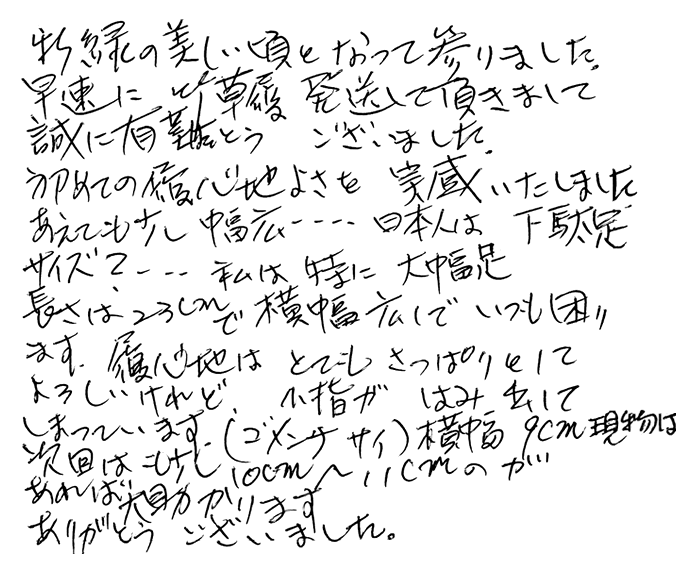 新緑の美しい頃となって参りました。
早速に 草履 発送して頂きまして
誠に有難とう ございました。
初めての履心地よさを 実感いたしました
あえても少し 幅広---- 日本人は 下駄足
サイズ?--- 私は 特に 大幅足
長さは、23cmで 横幅広しで いつも困り
ます。履心地は とても さっぱりとして
よろしいけれど、 小指が はみ出して
しまっています。(ゴメンナサイ)横幅 9cm現物は
次回はも少し10cm〜11cmのが
あれば大助かります
ありがとう ございました。